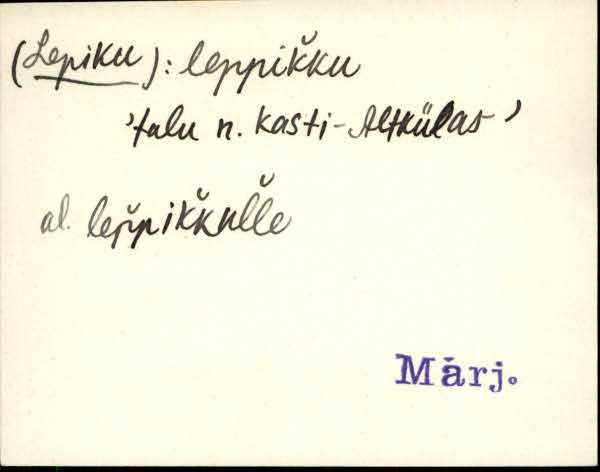 (Lepiku): leppik̆ku
'talu n. Kasti-Altkülas'
al. lep̆pik̆kul̆le
Märj.